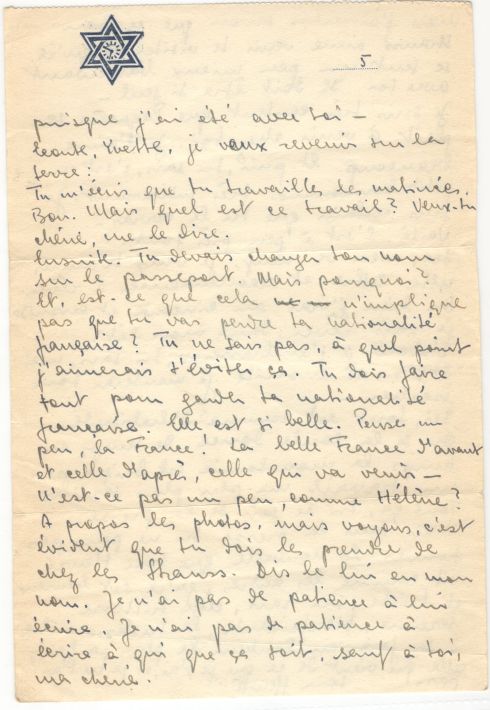 5
puisque j'ai été avec toi —
Ecoute, Yvette, je veux revenir sur la
terre:
Tu m'écris que tu travailles les matinées.
Bon. Mais quel est ce travail? Veux-tu
chérie, me le dire.
Ensuite. Tu devais changer ton nom
sur le passeport. Mais pourquoi?
Et, est-ce que cela n'implique
pas que tu vas perdre ta nationalité
française? Tu ne sais pas, à quel point
j'aimerais t'éviter ça. Tu dois faire
tout pour garder ta nationalité
française. Elle est si belle. Pense un
peu, la France! La belle France d'avant
et celle d'après, celle qui va venir —
N'est-ce pas un peu, comme Hélène?
A propos les photos, mais voyons, c'est
évident que tu dois les prendre de
chez les Strauss. Dis le lui en mon
nom. Je n'ai pas de patience à lui
écrire. Je n'ai pas de patience à
écrire à qui que ça soit, sauf à toi,
ma chérie.